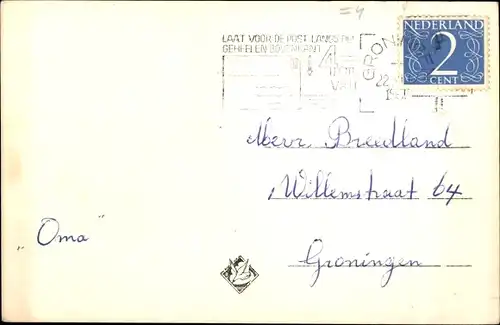 =4
LAAT VOOR DE POST LANGS DE
GEHEELEN BOVENKANT
4
GRONINGEN
22
NEDERLAND
2
CENT
Mevr Breedland
Willemstraat 64
Groningen
„Oma"